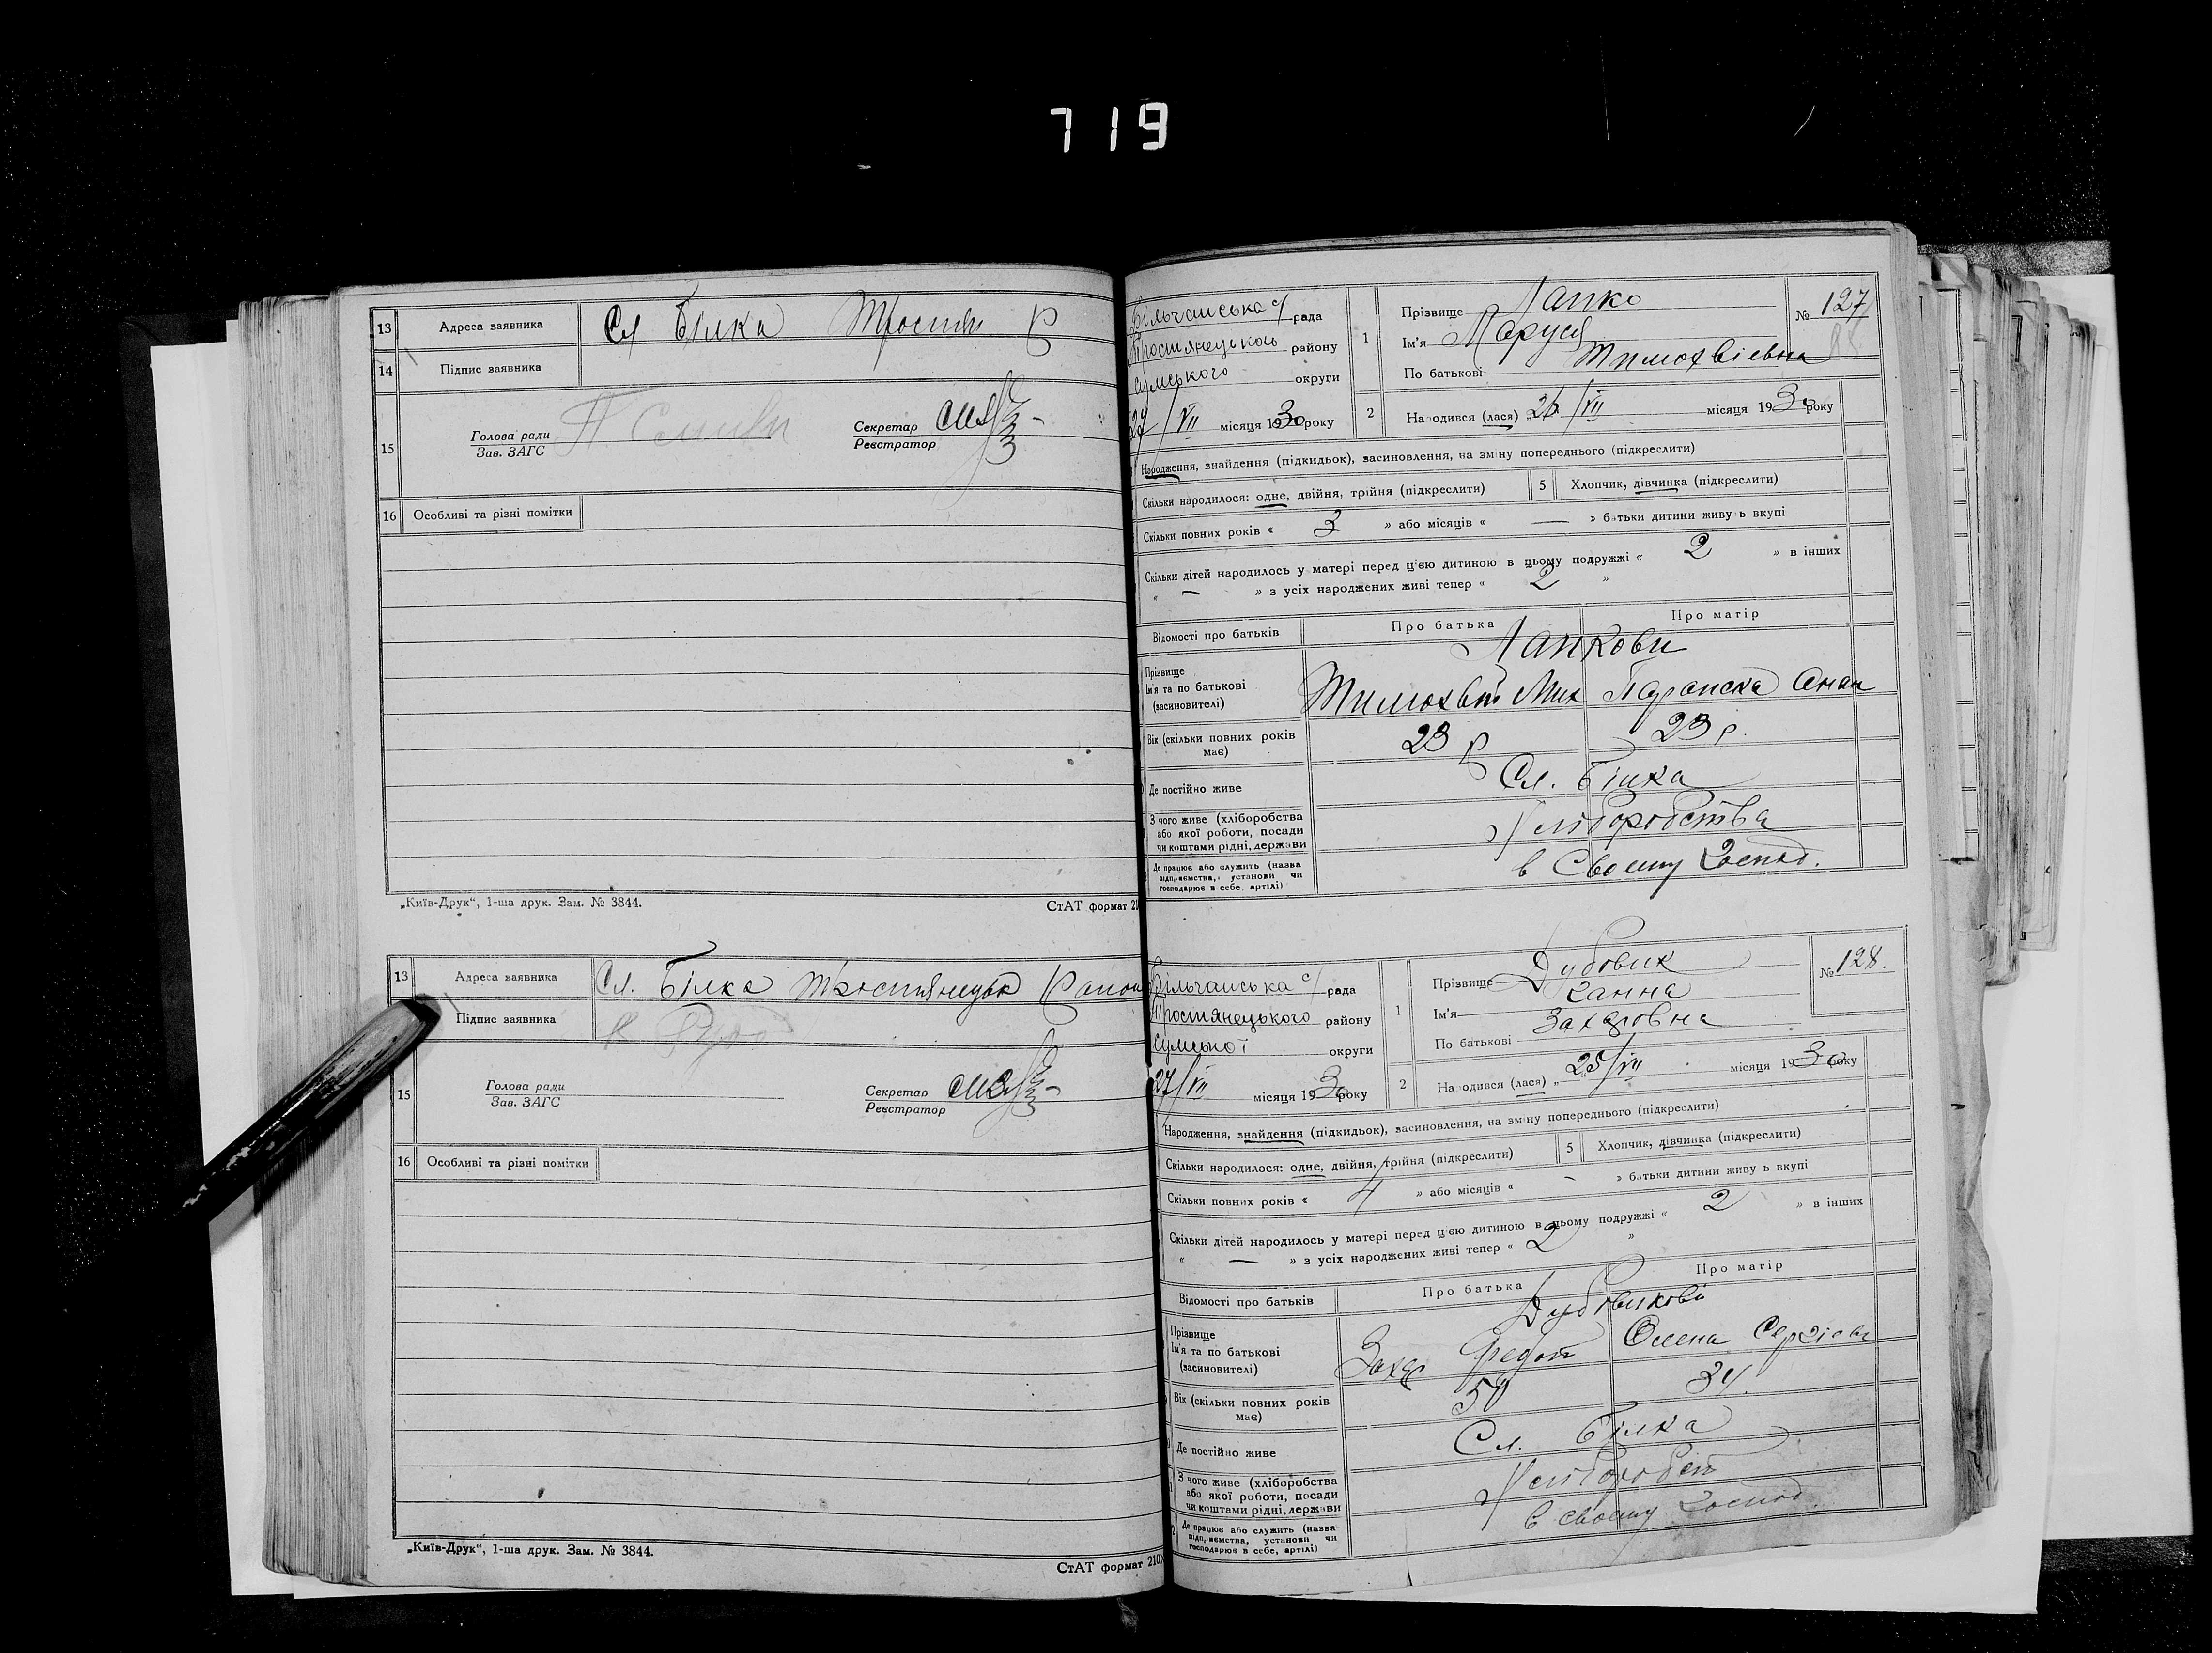 719
13 Адреса заявника Сл Білка Тростян Р
14 Підпис заявника
15 Голова ради
Зав. ЗАГС
Секретар
Реєстратор
16 Особливі та різні помітки
„Київ-Друк“, 1-ша друк. Зам. № 3844.
СтАТ формат 21
13 Адреса заявника Сл. Білка Тростянецьк Район
Підпис заявника
15 Голова ради
Зав. ЗАГС
Секретар
Реєстратор
16 Особливі та різні помітки
„Київ-Друк“, 1-ша друк. Зам. № 3844.
СтАТ формат 210
Більчанська с/ рада
Тростянецького району
Сумського округи
27/VII місяця 1930 року
1 Прізвище Лапко
Ім'я Маруся
По батькові Тимохвіевна
№ 127
88
2 Народився (лася) „26/VII місяця 1930 року
Народження, знайдення (підкидьок), засиновлення, на зміну попереднього (підкреслити)
Скільки народилося: одне, двійня, трійня (підкреслити) 5 Хлопчик, дівчинка (підкреслити)
Скільки повних років « 3 » або місяців « — » батьки дитини живу ь вкупі
Скільки дітей народилось у матері перед цією дитиною в цьому подружжі « 2 » в інших
« — » з усіх народжених живі тепер « 2 »
Відомості про батьків Про батька Про матір
Лапкови
Прізвище
Ім'я та по батькові
(засиновителі)
Тимохвій Мих Параска Онан
Вік (скільки повних років
має)
23 р 23 р.
Де постійно живе Сл. Білка
З чого живе (хліборобства
або якої роботи, посади
чи коштами рідні, держави
Хліборобства
Де працює або служить (назва
підприємства, установи чи
господарює в себе, артілі)
в Своему Господ.
Більчанська с/ рада
Тростянецького району
Сумської округи
27/VII місяця 1930 року
1 Прізвище Дубовик
Ім'я Ганна
По батькові Захаровна
№ 128.
2 Народився (лася) „25/VII місяця 1930 року
Народження, знайдення (підкидьок), засиновлення, на зміну попереднього (підкреслити)
Скільки народилося: одне, двійня, трійня (підкреслити) 5 Хлопчик, дівчинка (підкреслити)
Скільки повних років « 4 » або місяців « - » батьки дитини живу ь вкупі
Скільки дітей народилось у матері перед цією дитиною в цьому подружжі « 2 » в інших
« — » з усіх народжених живі тепер « 2 »
Відомості про батьків Про батька Про матір
Дубовикови
Прізвище
Ім'я та по батькові
(засиновителі)
Захар Федот Олена Сергіевн
Вік (скільки повних років
має)
50 34.
Де постійно живе Сл. Білка
З чого живе (хліборобства
або якої роботи, посади
чи коштами рідні, держави
Хліборобст
Де працює або служить (назва
підприємства, установи чи
господарює в себе, артілі)
в своему Господ.